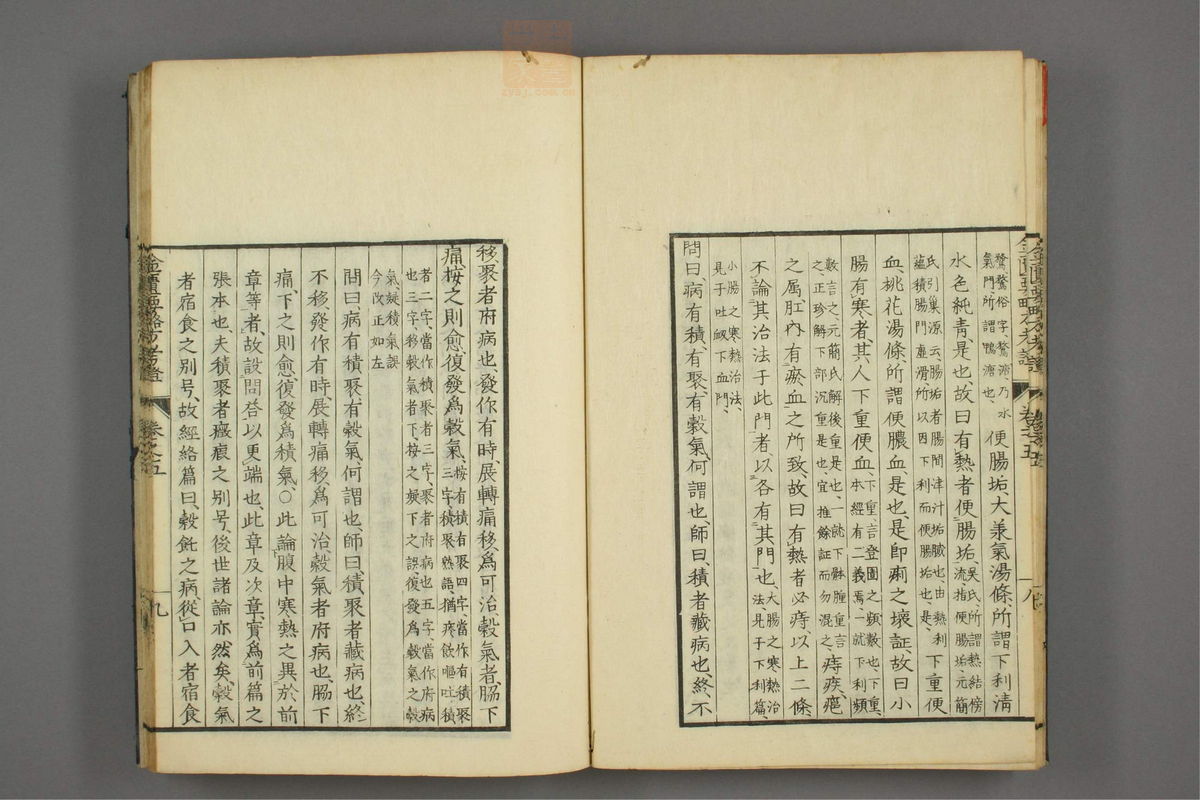 鶩、鶩俗字、鶩溏乃水
氣門所謂鴨溏也、
便腸垢、大兼氣湯條、所謂下利淸
水色純靑、是也、故曰有熱者便腸垢、
吳氏所謂熱結傍
流、指便腸垢、元簡
氏引巢源云、腸垢者腸間津汁垢膩也、由熱利
蘊積腸門虛滑所以因下利而便腸垢也、是、
下重便
血、桃花湯條、所謂便膿血是也、是卽痢之壞証、故曰小
腸有寒者、其人下重便血、
下重言登圊之頻數也、下重、
本經有二義焉、一就下利頻
數言之、元簡氏解後重是也、一就下
之、正珍解下部沉重是也、宜推餘証而勿混之、
痔疾、瘜
之屬、肛內有瘀血之所致、故曰有熱者必痔、以上二條、
不論其治法于此門者、以各有其門也、
大腸之寒熱治
法、見于下利篇、
小腸之寒熱治法、
見于吐衄下血門、
問曰、病有積、有聚、有穀氣、何謂也、師曰、積者藏病也、終、不
移、聚者府病也、發作有時、展轉痛移、爲可治、穀氣者、脇下
痛、按之則愈、復發爲穀氣、
按、有積有聚四字、當作有積聚
三字、積聚熟語、猶痰飮嘔吐、積
者二字、當作積聚者三字、聚者府病也五字、當作府病
也三字、移穀氣者下、按之
下之誤、復發爲穀氣之穀
氣、疑積氣誤
今改正如左
問曰、病有積聚、有穀氣、何謂也、師曰、積聚者藏病也、終
不移、發作有時、展轉痛移、爲可治、穀氣者府病也、脇下
痛、下之則愈、復發爲積氣、○此論腹中寒熱之異、於前
章等者、故設問答以更端也、此章及次章、實爲前篇之
張本也、夫積聚者癥瘕之別号、後世諸論亦然矣、穀氣
者宿食之別号、故經絡篇曰、穀飥之病、從口入者宿食
金匱要略方考證
卷之五
九
卷之五
八
zysj.com.cn